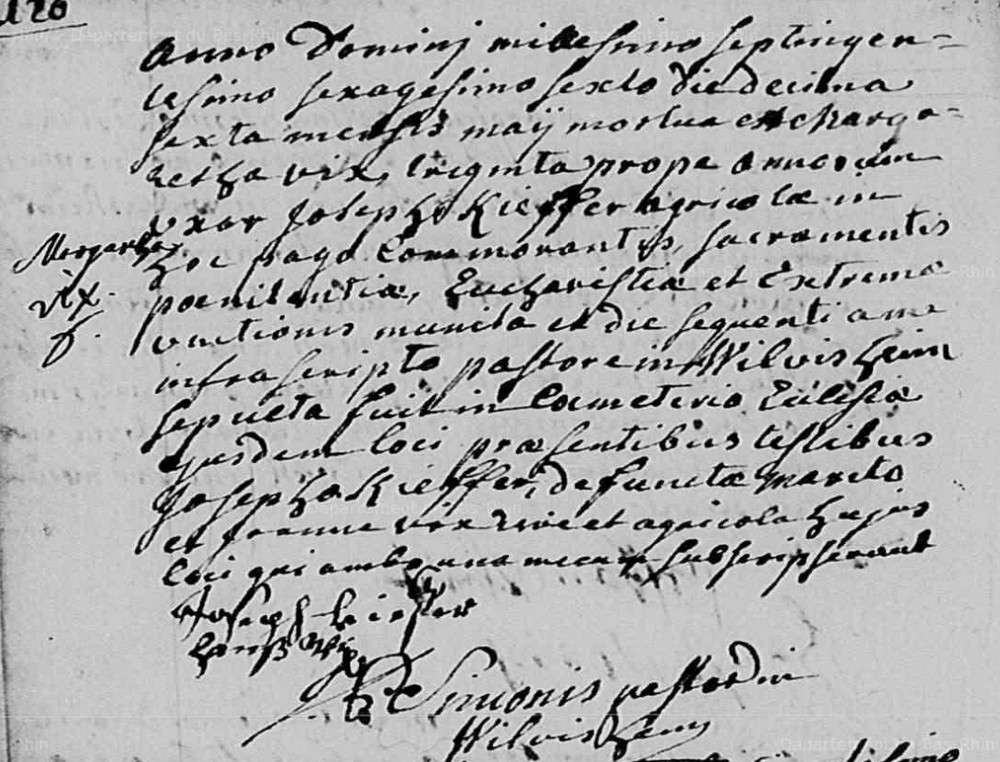 120
Anno Dominj millesimo septingen=
tesimo sexagesimo sexto die decima
sexta mensis maij mortua est Marga=
retha vix, triginta prope annorum
uxor Josephi Kieffer agricolæ in
hoc pago commorantis, sacramentis
poenitentiæ, Eucharistiæ et Extremæ
unctionis munita et die sequenti a me
infrascripto pastore in Wilvisheim
sepulta fuit in Cœmeterio Ecclesiæ
ejusdem loci præsentibus testibus
Josepho Kieffer, defunctæ marito
et Joanne vix cive et agricola hujus
loci qui ambo una mecum subscripserunt
Margaretha
vix.
f.
Joseph Kieffer
hanß vix
Simonis pastor in
Wilvisheim